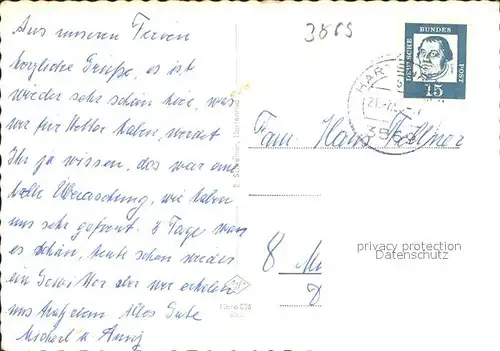 Aus unseren Ferien
herzliche Grüße, es ist
wieder sehr schön hier, was
wir für Wetter haben, werdet
Ihr ja wissen, das war eine
tolle Überraschung, wir haben
uns sehr gefreut. 8 Tage war
es schön, heute schon wieder
ein Gewitter aber wir erholen
uns trotzdem Alles Gute
Michael u.
3869
DEUTSCHE BUNDES POST
15
HAR
Fam. Hans
8 M
privacy protection
Datenschutz